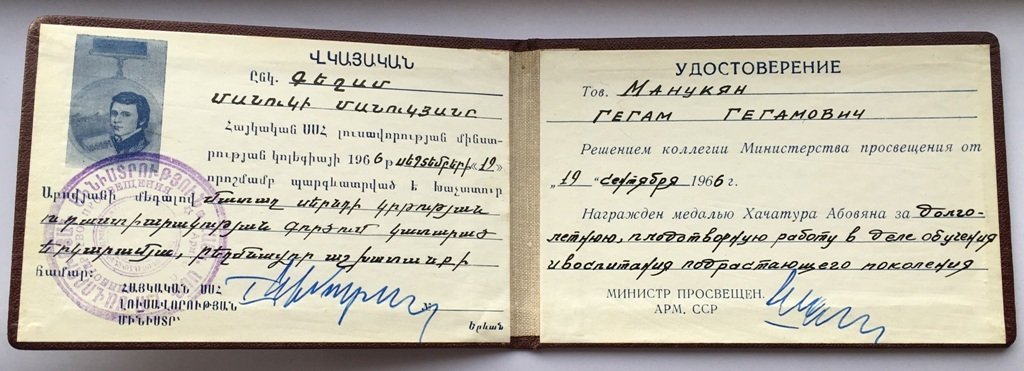 ՎԿԱՅԱԿԱՆ
Ընկ. Գեղամ
Մանուկի Մանուկյանը
Հայկական ՍՍՀ լուսավորության մինիստ-
րության կոլեգիայի 1966 թ սեպտեմբերի «19»
որոշմամբ պարգևատրված է Խաչատուր
Աբովյանի մեդալով մատաղ սերնդի կրթության
և դաստիարակության գործում կատարած
երկարամյա, բեղմնավոր աշխատանքի
համար։
ՀԱՅԿԱԿԱՆ ՍՍՀ
ԼՈՒՍԱՎՈՐՈՒԹՅԱՆ
ՄԻՆԻՍՏՐ
Երևան
УДОСТОВЕРЕНИЕ
Тов. Манукян
Гегам Гегамович
Решением коллегии Министерства просвещения от
„19“ сентября 1966 г.
Награжден медалью Хачатура Абовяна за долго-
летнюю, плодотворную работу в деле обучения
и воспитания подрастающего поколения
МИНИСТР ПРОСВЕЩЕН.
АРМ. ССР